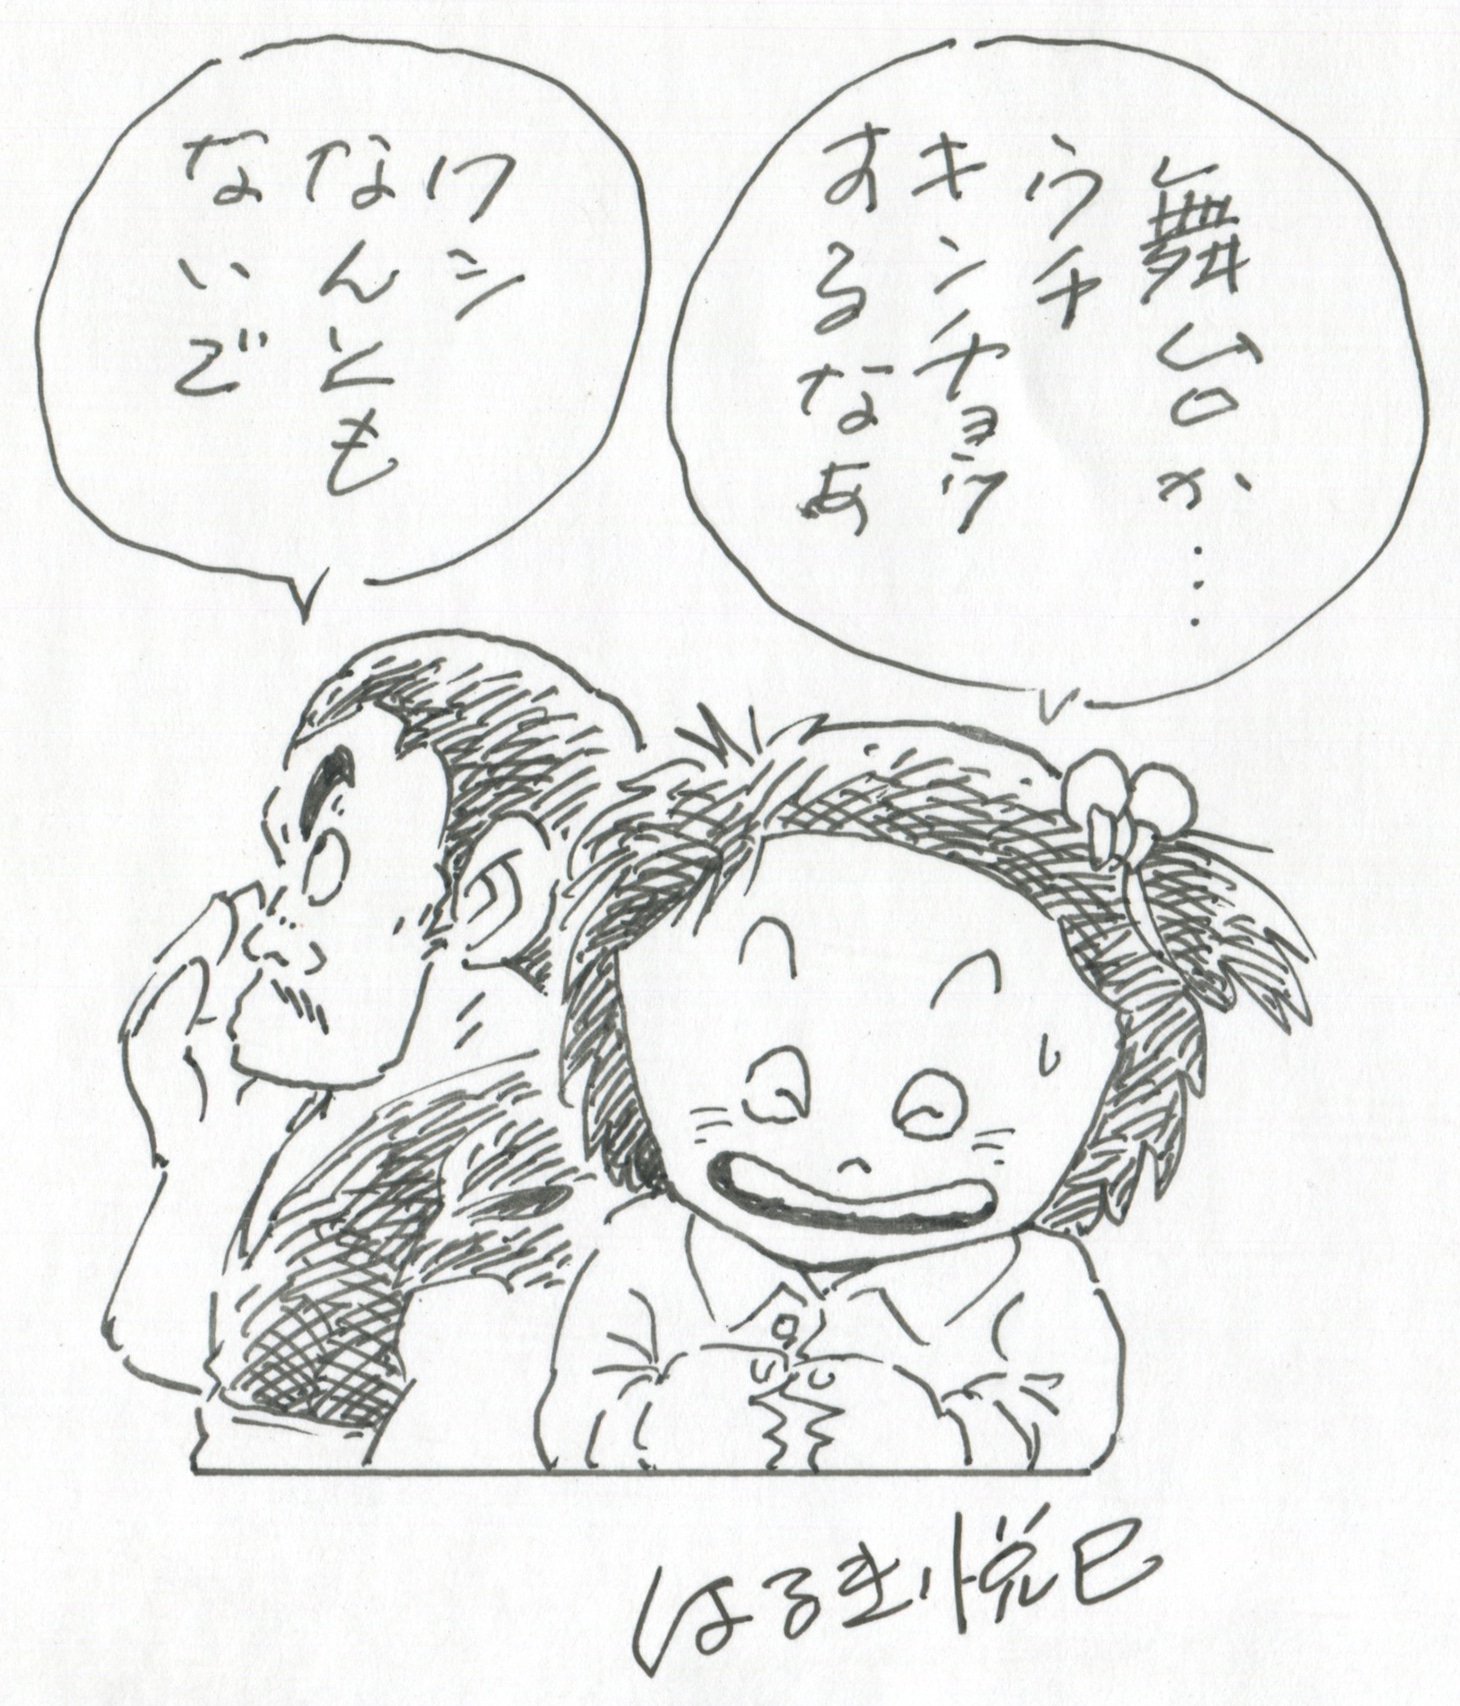 舞台か…
ウチ
キンチョウ
するなあ
ワシ
なんとも
ないで
はるき悦巳